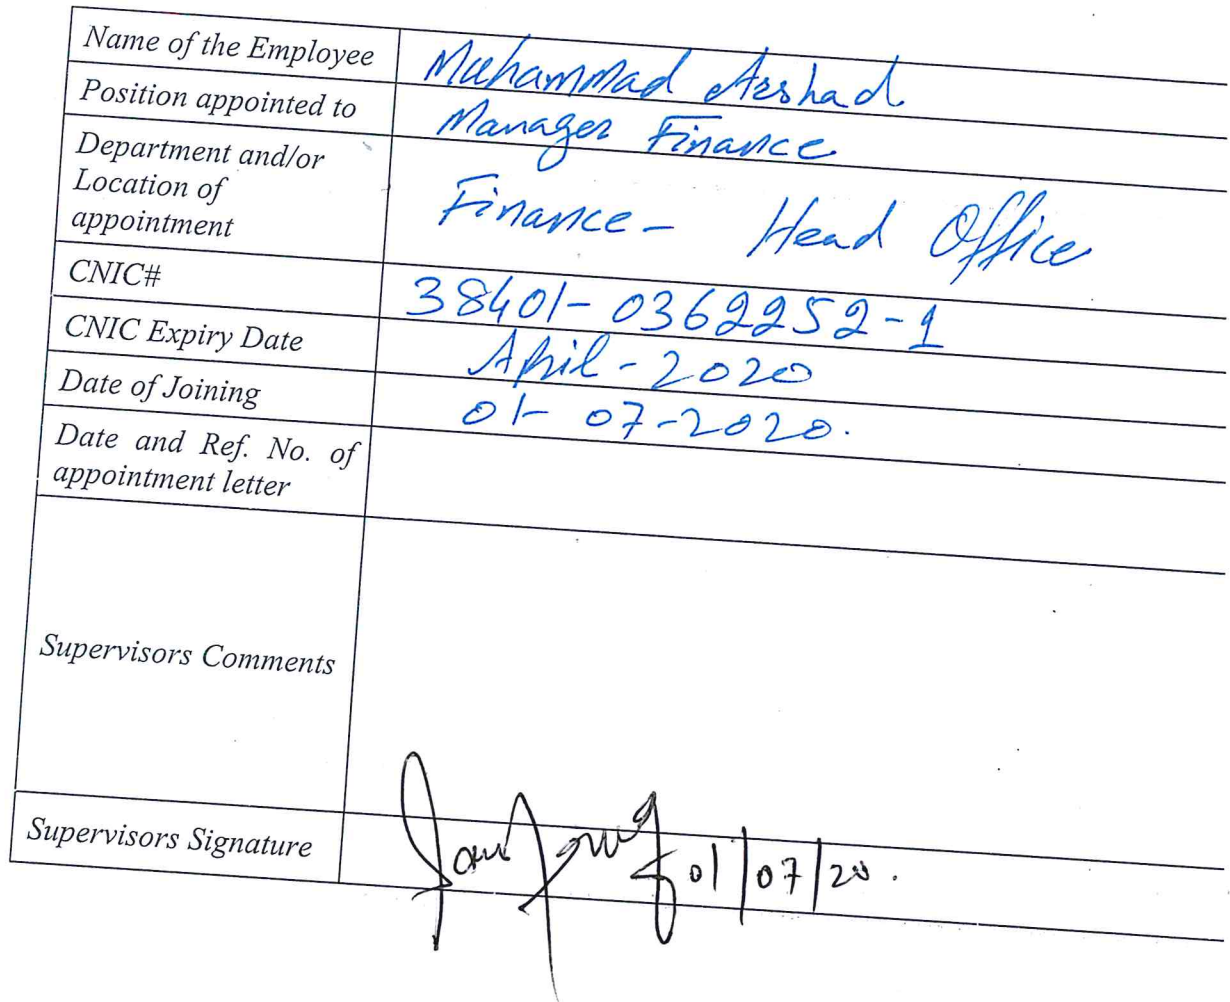 Name of the Employee Muhammad Arshad
Position appointed to Manager Finance
Department and/or
Location of
appointment Finance - Head Office
CNIC# 38401-0362252-1
CNIC Expiry Date April - 2020
Date of Joining 01-07-2020.
Date and Ref. No. of
appointment letter
Supervisors Comments
Supervisors Signature 01/07/20.